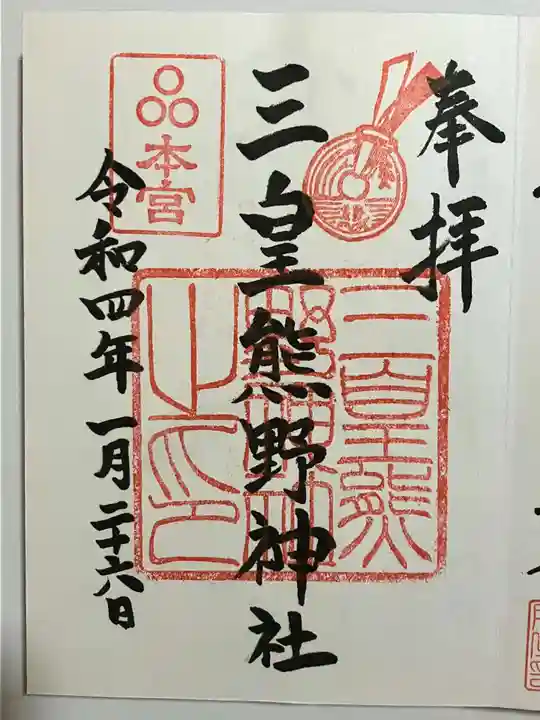 奉拝
三皇熊野神社
三皇熊野神社之印
本宮
令和四年一月二十六日